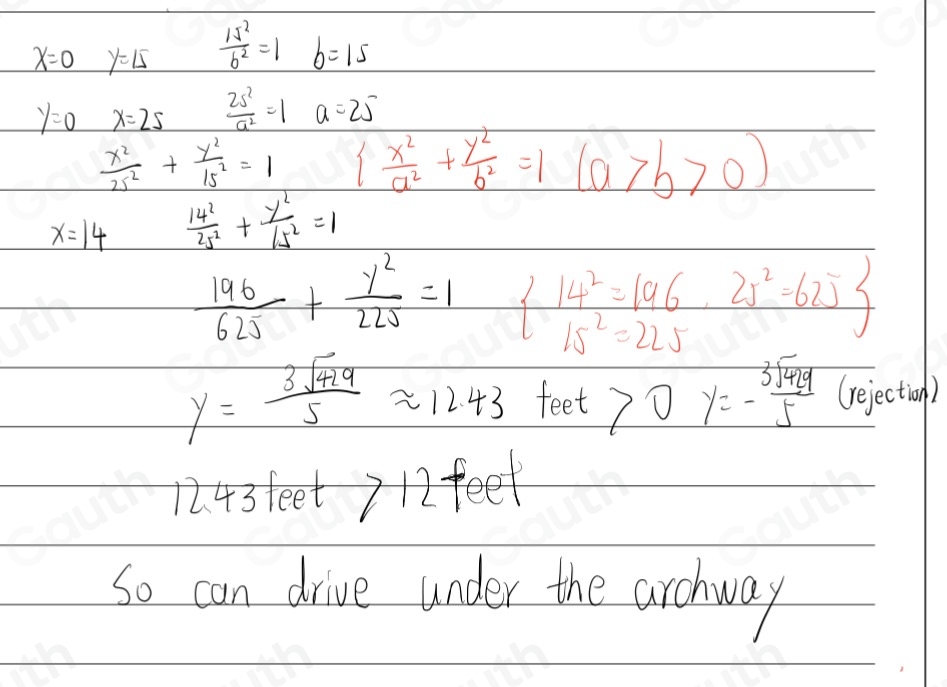 x=0 y=15 15²/b²=1 b=15
y=0 x=25 25²/a²=1 a=25
x²/25² + y²/15² = 1 { x²/a² + y²/b² =1 (a>b>0)
x=14 14²/25² + y²/15² =1
196/625 + y²/225 =1 { 14²=196, 25²=625
15²=225 }
y = 3√429/5 ≈12.43 feet >0 y=-3√429/5 (rejection)
12.43 feet >12 feet
So can drive under the archway
Gauth